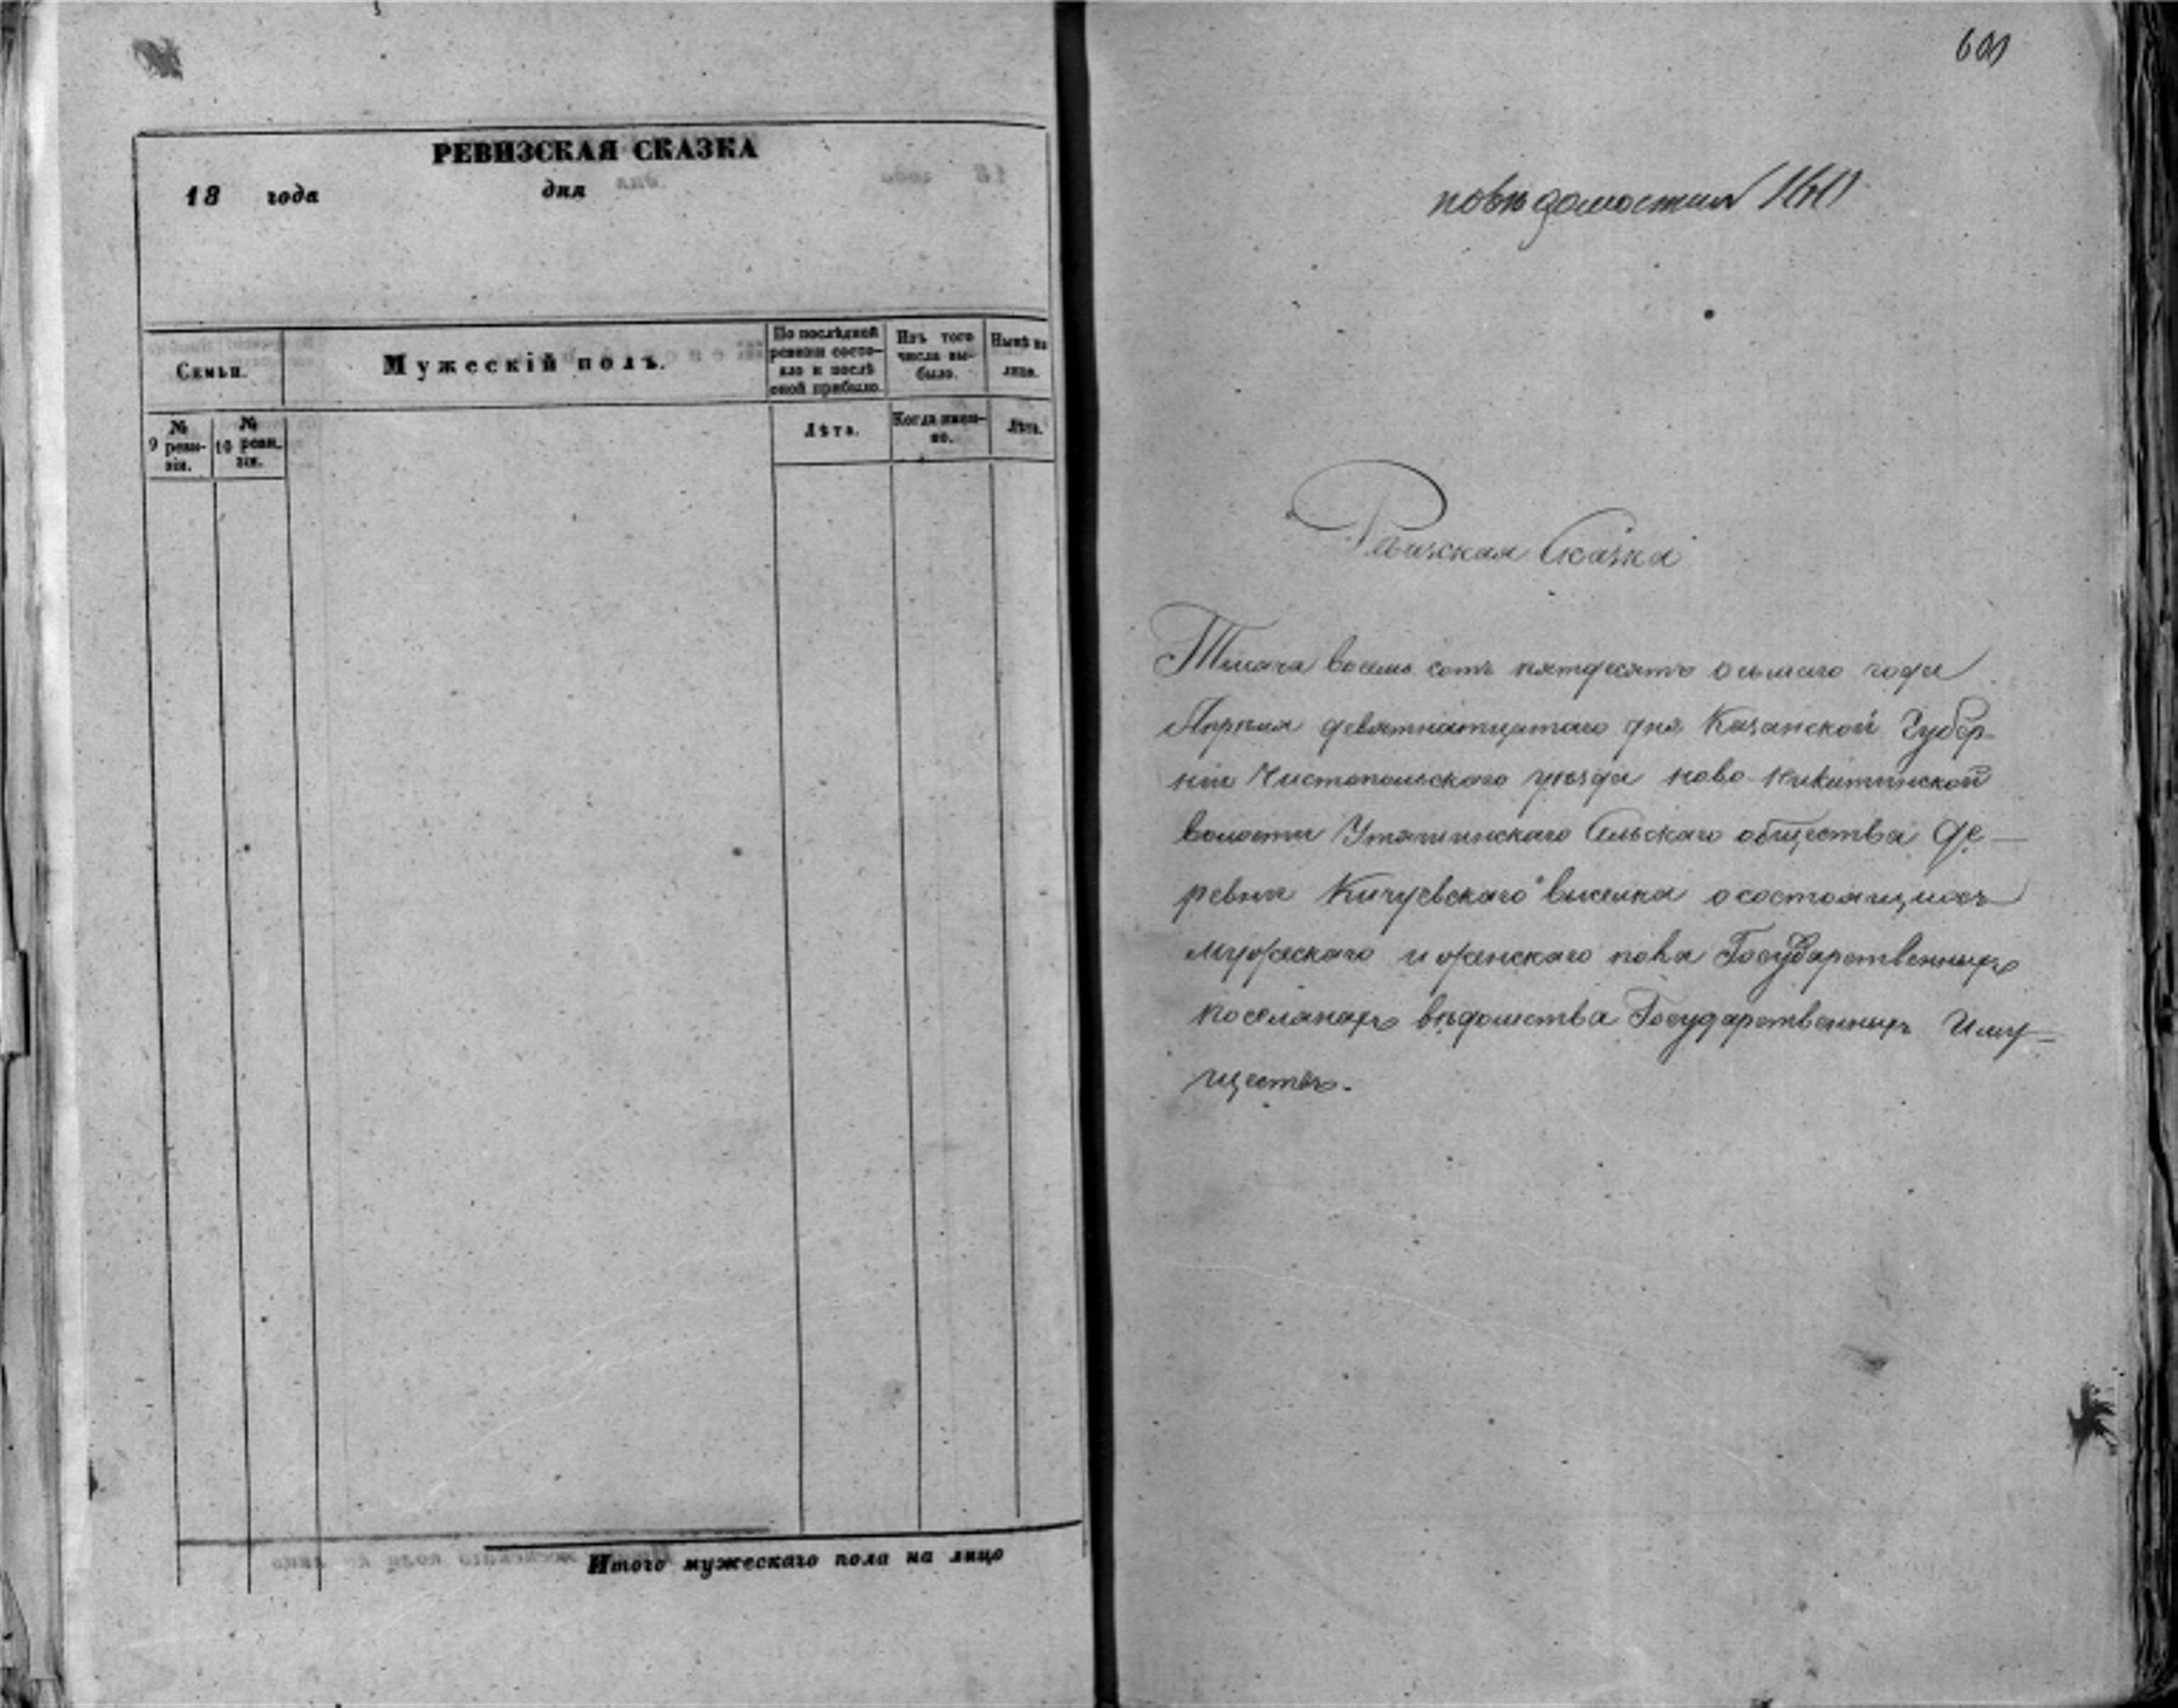 РЕВИЗСКАЯ СКАЗКА
18 года дня
Семьи.
Мужескій полъ.
По послѣдней ревизіи состояло и послѣ оной прибыло.
Изъ того числа выбыло.
Нынѣ на лицо.
№ 9 ревизіи.
№ 10 ревизіи.
Лѣта.
Когда именно.
Лѣта.
Итого мужескаго пола на лицо
повѣдомостям
Ревизская Сказка
Тысяча восемь сотъ пятдесятъ осьмаго года
Апрѣля девятнатцатаго дня Казанской Губер-
ніи Чистопольскаго уѣзда ново-Никитинской
волости Утяшинскаго Сельскаго общества де-
ревни Кичуевскаго выселка осостоящихъ
мужескаго и женскаго пола Государственныхъ
поселянахъ вѣдомства Государственныхъ Иму-
ществъ.